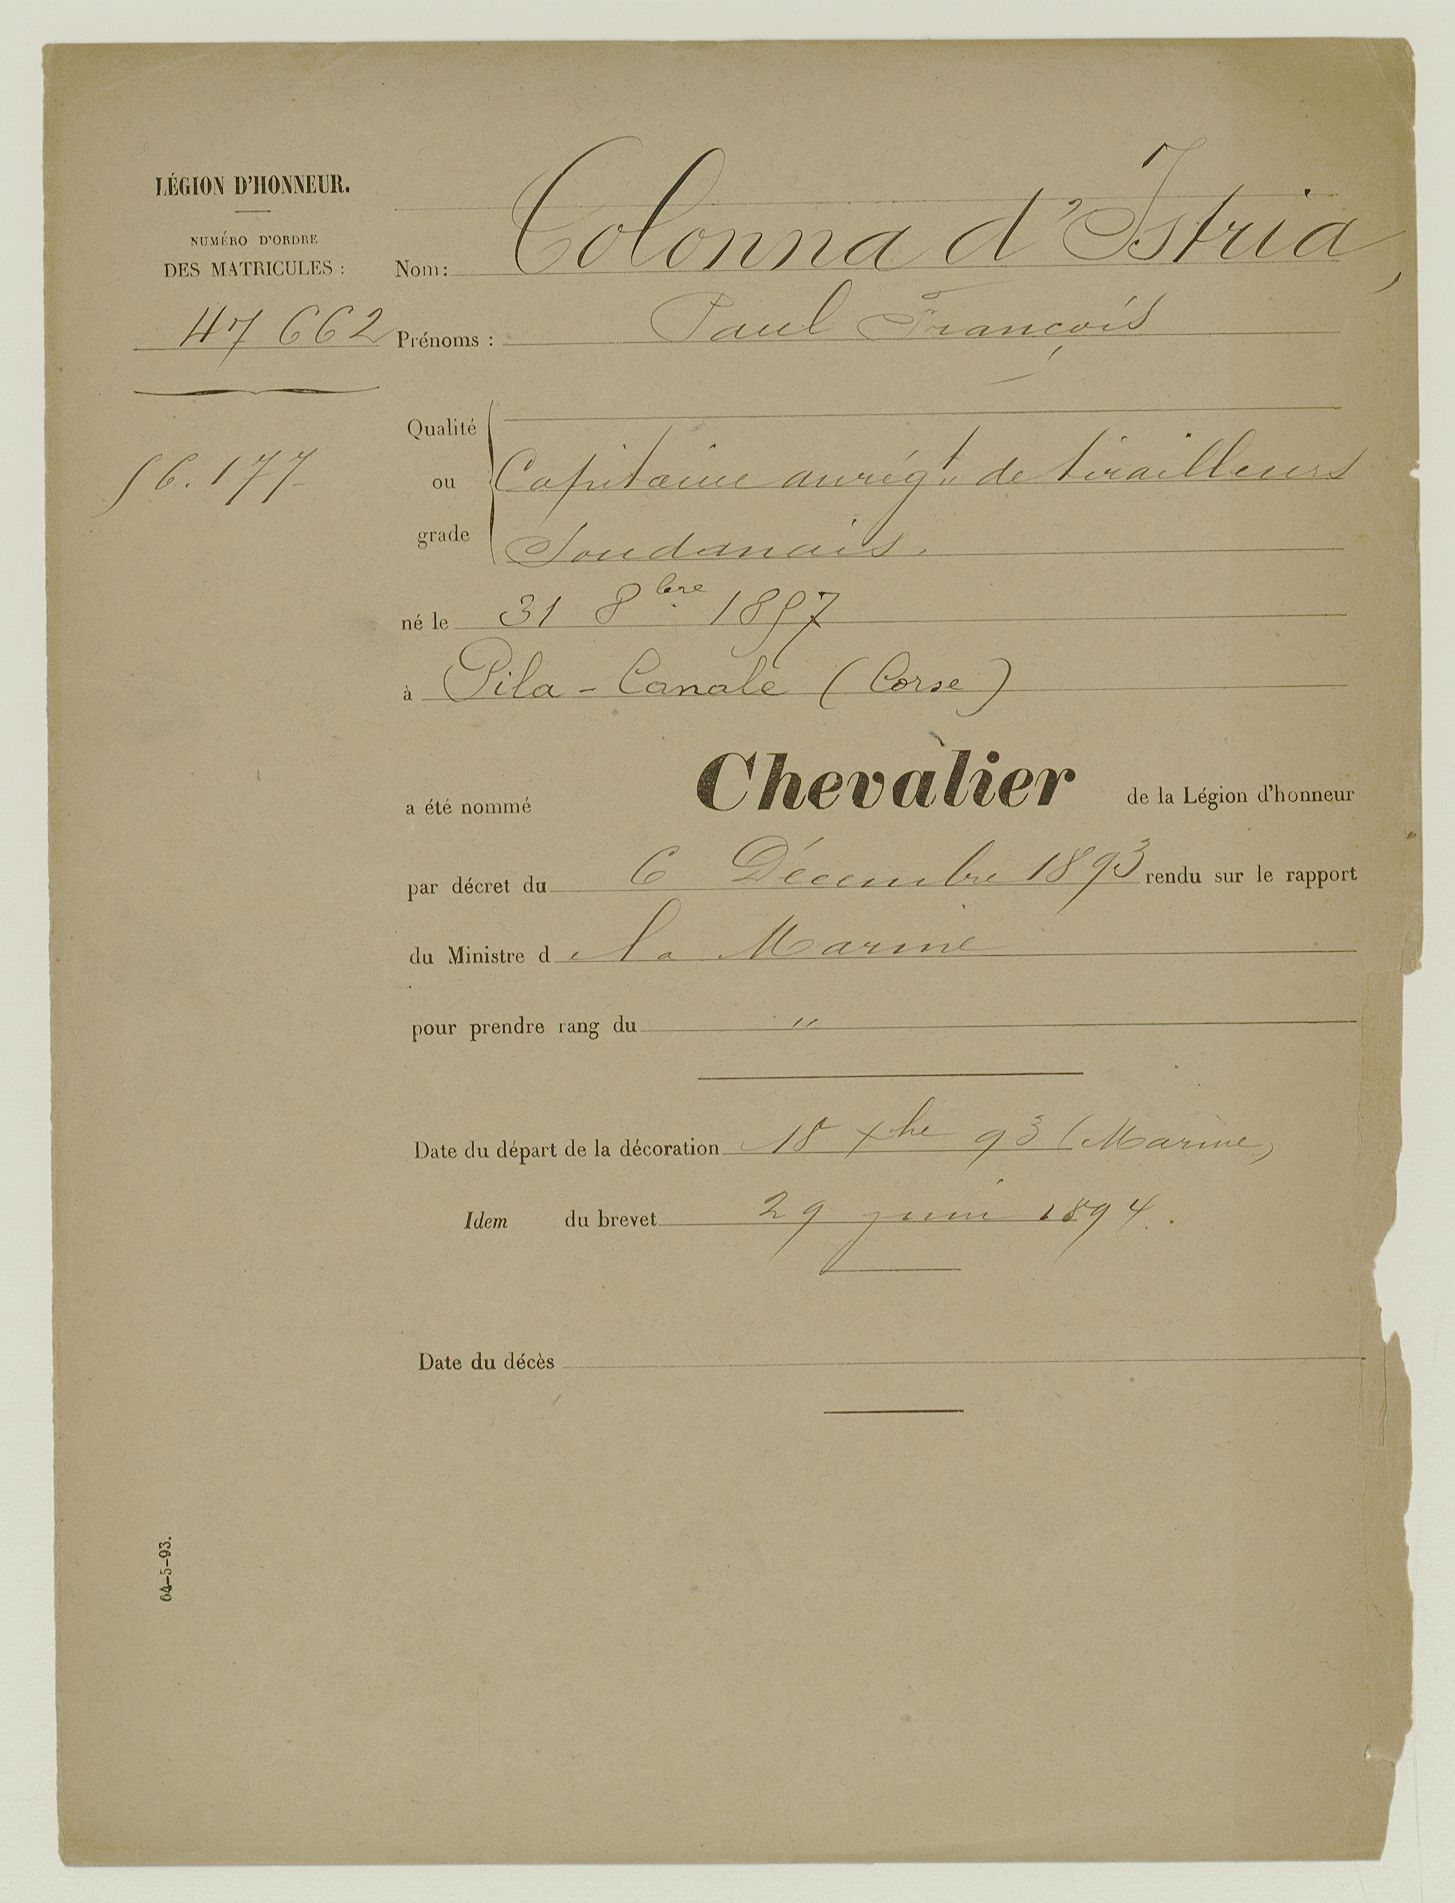 LÉGION D'HONNEUR.
NUMÉRO D'ORDRE
DES MATRICULES :
47 662
56.177
Nom : Colonna d'Istria,
Prénoms : Paul François
Qualité
ou
grade
Capitaine au rég.t de tirailleurs
Soudanais.
né le 31 8bre 1857
à Pila-Canale (Corse)
a été nommé Chevalier de la Légion d'honneur
par décret du 6 Décembre 1893 rendu sur le rapport
du Ministre d e la Marine
pour prendre rang du "
Date du départ de la décoration 18 Xbre 93 (Marine)
Idem du brevet 29 juin 1894.
Date du décès
64-5-93.